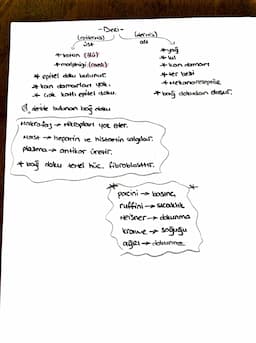 -Deri-
(epidermis) (dermis)
üst alt
* korun (ölü) * yağ
* malpighi (canlı) * kıl
* epitel doku bulunur. * kan damarı
* kan damarları yok. * ter bezi
* çok katlı epitel doku. * Mekanoreseptör
* bağ dokudan oluşur.
deride bulunan bağ doku
Makrofaj → Mikropları yok eder.
Mast → heparin ve histamin salgılar.
plazma → antikor üretir.
* bağ doku temel hüc. fibroblasttır.
pacini → basınç
ruffini → sıcaklık
Meisner → dokunma
krause → soğuğu
ağrı → dokunma